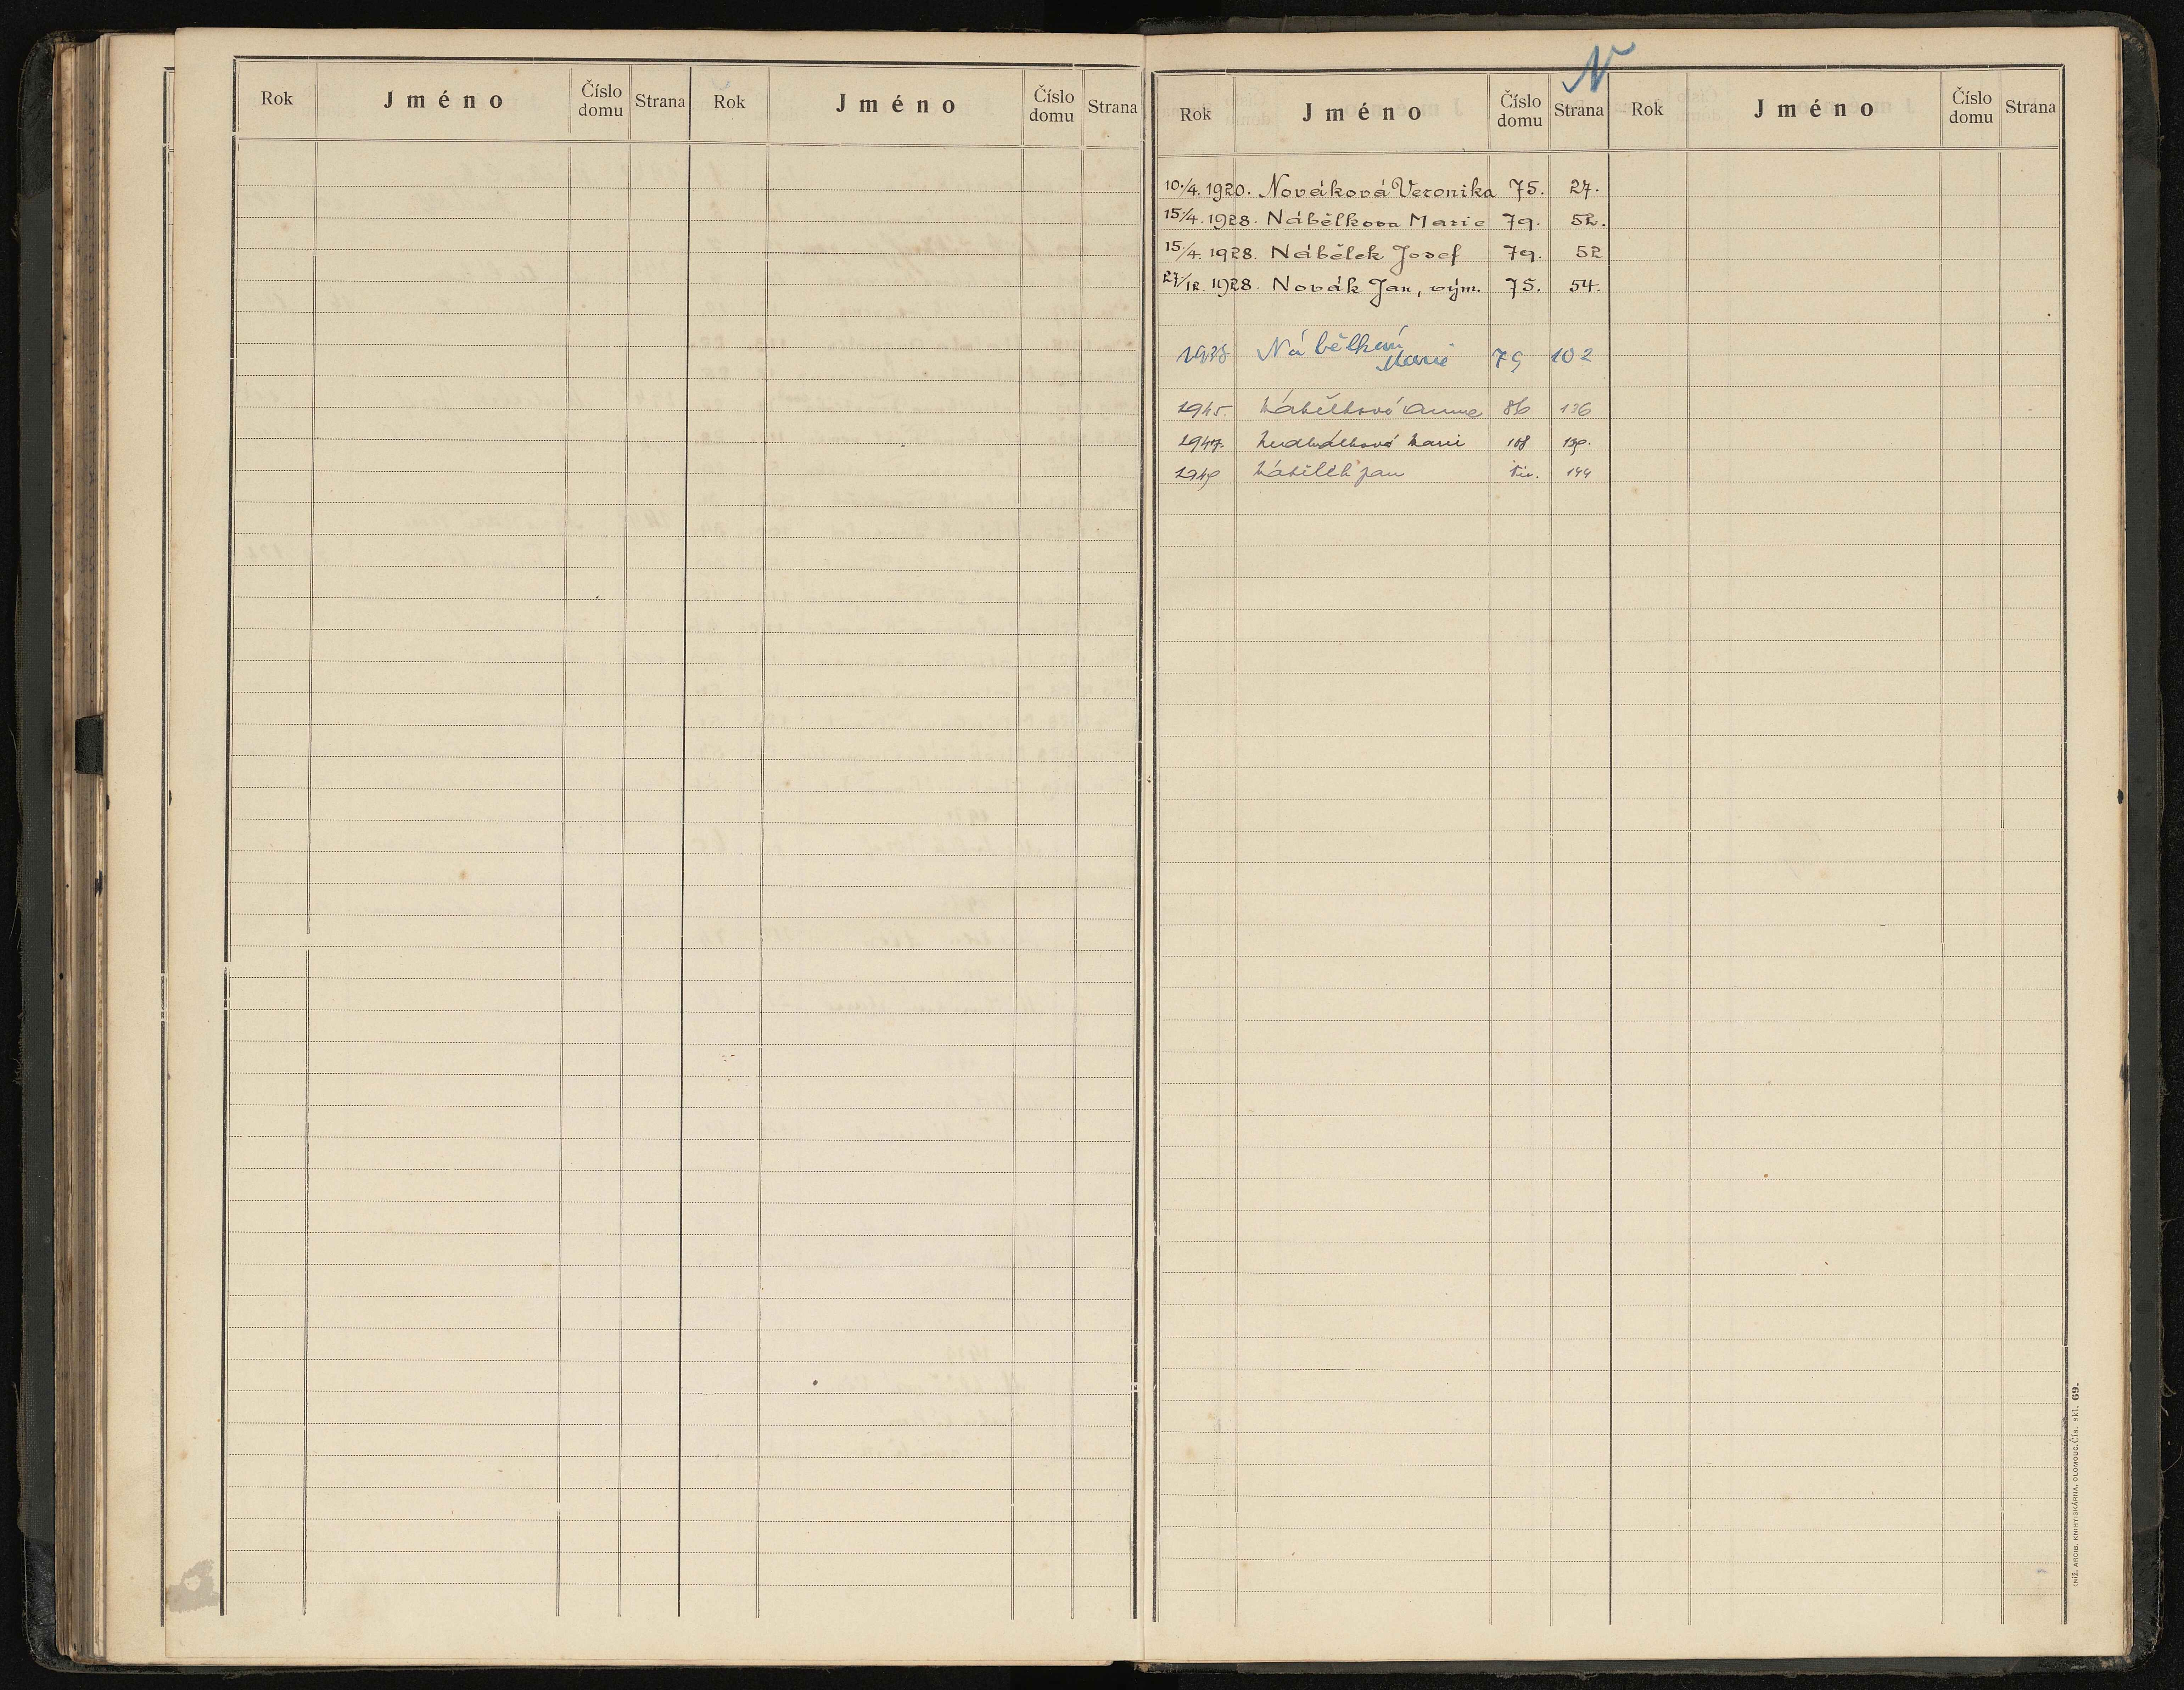 Rok Jméno Číslo domu Strana Rok Jméno Číslo domu Strana
N
Rok Jméno Číslo domu Strana Rok Jméno Číslo domu Strana
10./4. 1920. Nováková Veronika 75. 27.
15/4. 1928. Nábělkova Marie 79. 52.
15./4. 1928. Nábělek Josef 79. 52
27/12. 1928. Novák Jan, vým. 75. 54.
1938 Nábělková Marie 79 102
1945. Nábělková Anna 86 136
1947. Marie 108
1949 Nábělek Jan 144
KNIHTISKÁRNA, OLOMOUC. Čís. skl. 69.